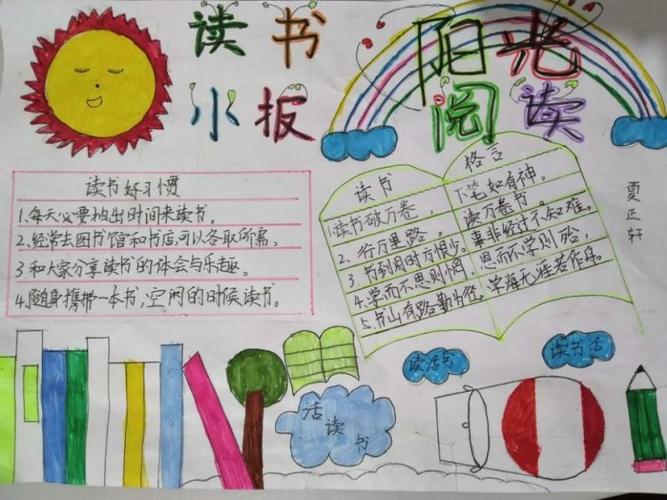 读书
小报
阳光
阅读
读书好习惯
1.每天必要抽出时间来读书。
2.经常去图书馆和书店,可以各取所需。
3和大家分享读书的体会与乐趣。
4.随身携带一本书,空闲的时候读书。
读书 格言
1.读书破万卷， 下笔如有神。
2.行万里路， 读万卷书。
3.书到用时方恨少。事非经过不知难。
4.学而不思则惘，思而不学则殆，
5.书山有路勤为径。学海无涯苦作舟。
夏正轩
读活书
读书活
活读书